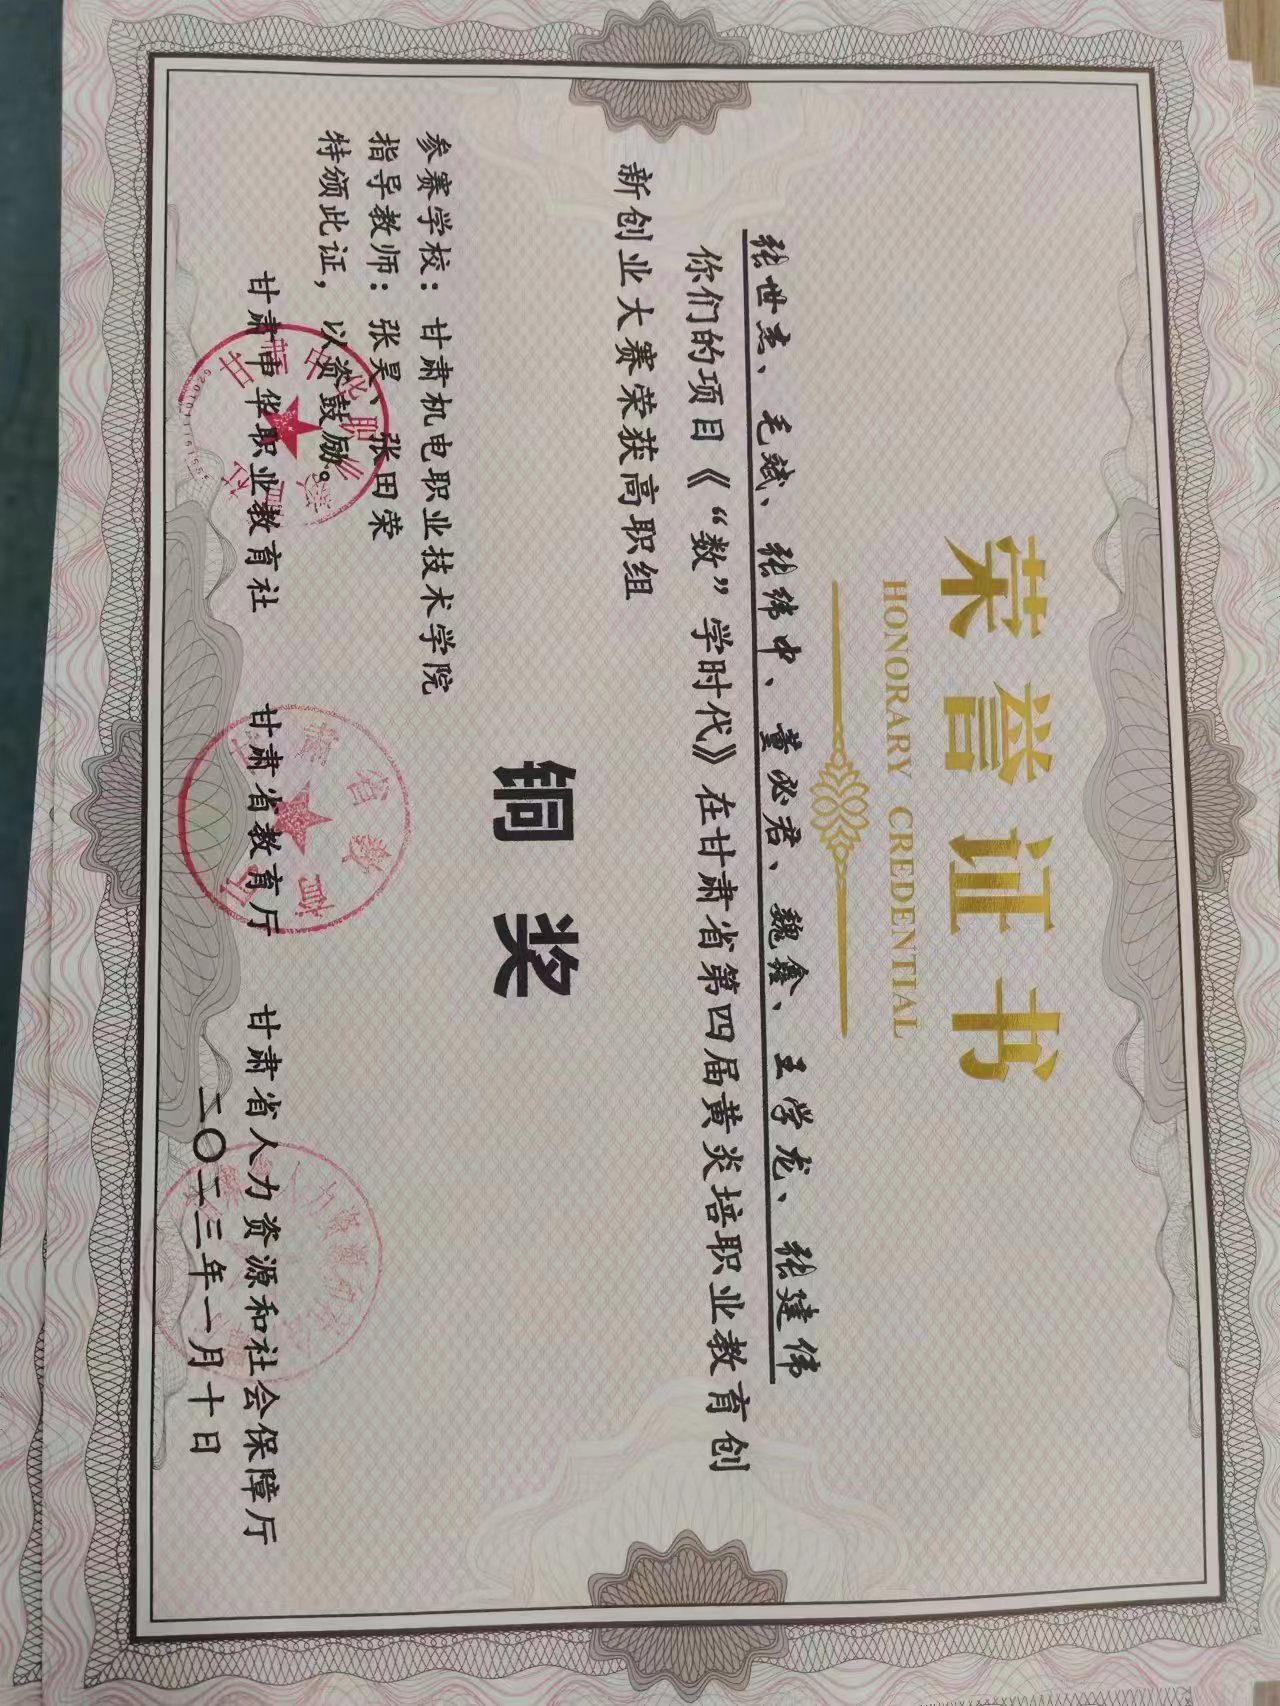 荣誉证书
HONORARY CREDENTIAL
张世杰、毛斌、张纬中、董必君、魏鑫、王学龙、张建伟
你们的项目《“数”学时代》在甘肃省第四届黄炎培职业教育创
新创业大赛荣获高职组
铜 奖
参赛学校：甘肃机电职业技术学院
指导教师：张昊、张田荣
特颁此证，以资鼓励。
甘肃中华职业教育社 甘肃省教育厅 甘肃省人力资源和社会保障厅
二〇二三年一月十日